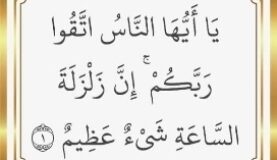 يَا أَيُّهَا النَّاسُ اتَّقُوا
رَبَّكُمْ ۚ إِنَّ زَلْزَلَةَ
السَّاعَةِ شَيْءٌ عَظِيمٌ ١